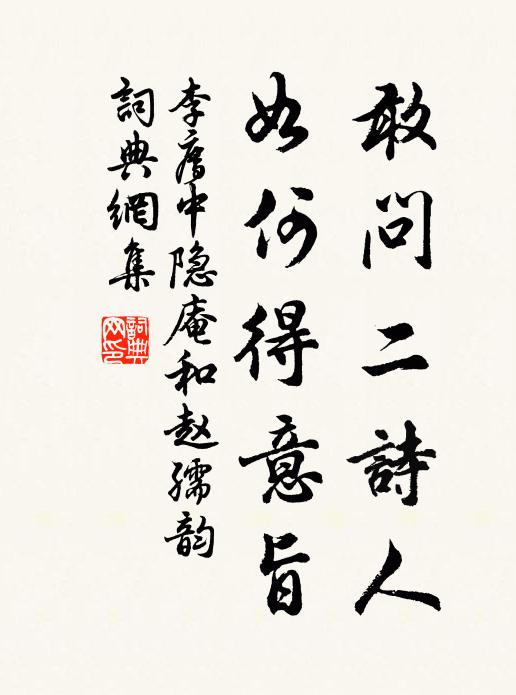 敢問二詩人
如何得意旨
李膺中隐庵和赵孺韵
詞典網集
詞典
网印